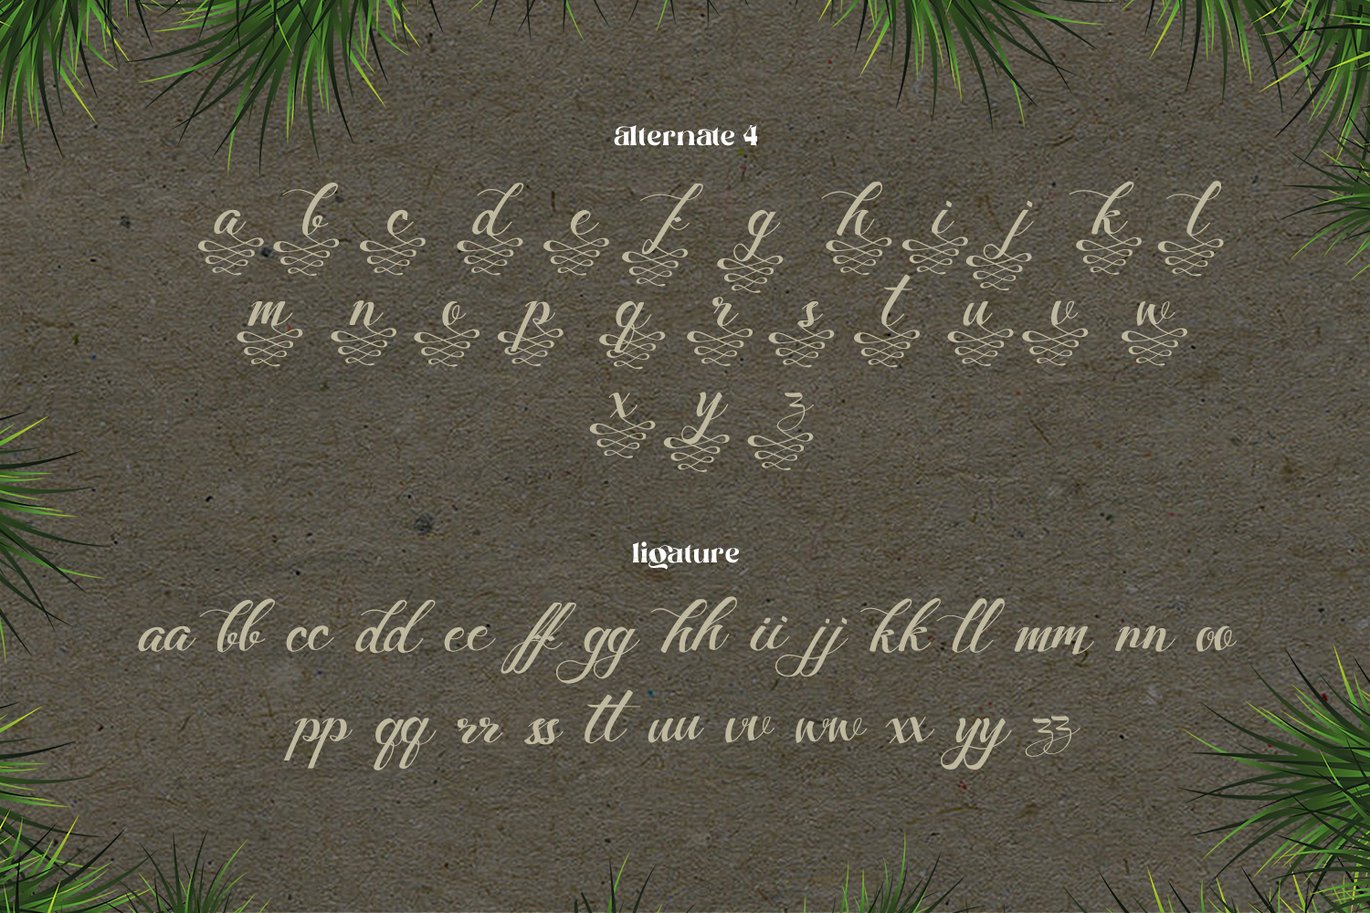 alternate 4
a b c d e f g h i j k l
m n o p q r s t u v w
x y z
ligature
aa bb cc dd ee ff gg hh ii jj kk ll mm nn oo
pp qq rr ss tt uu vv ww xx yy zz